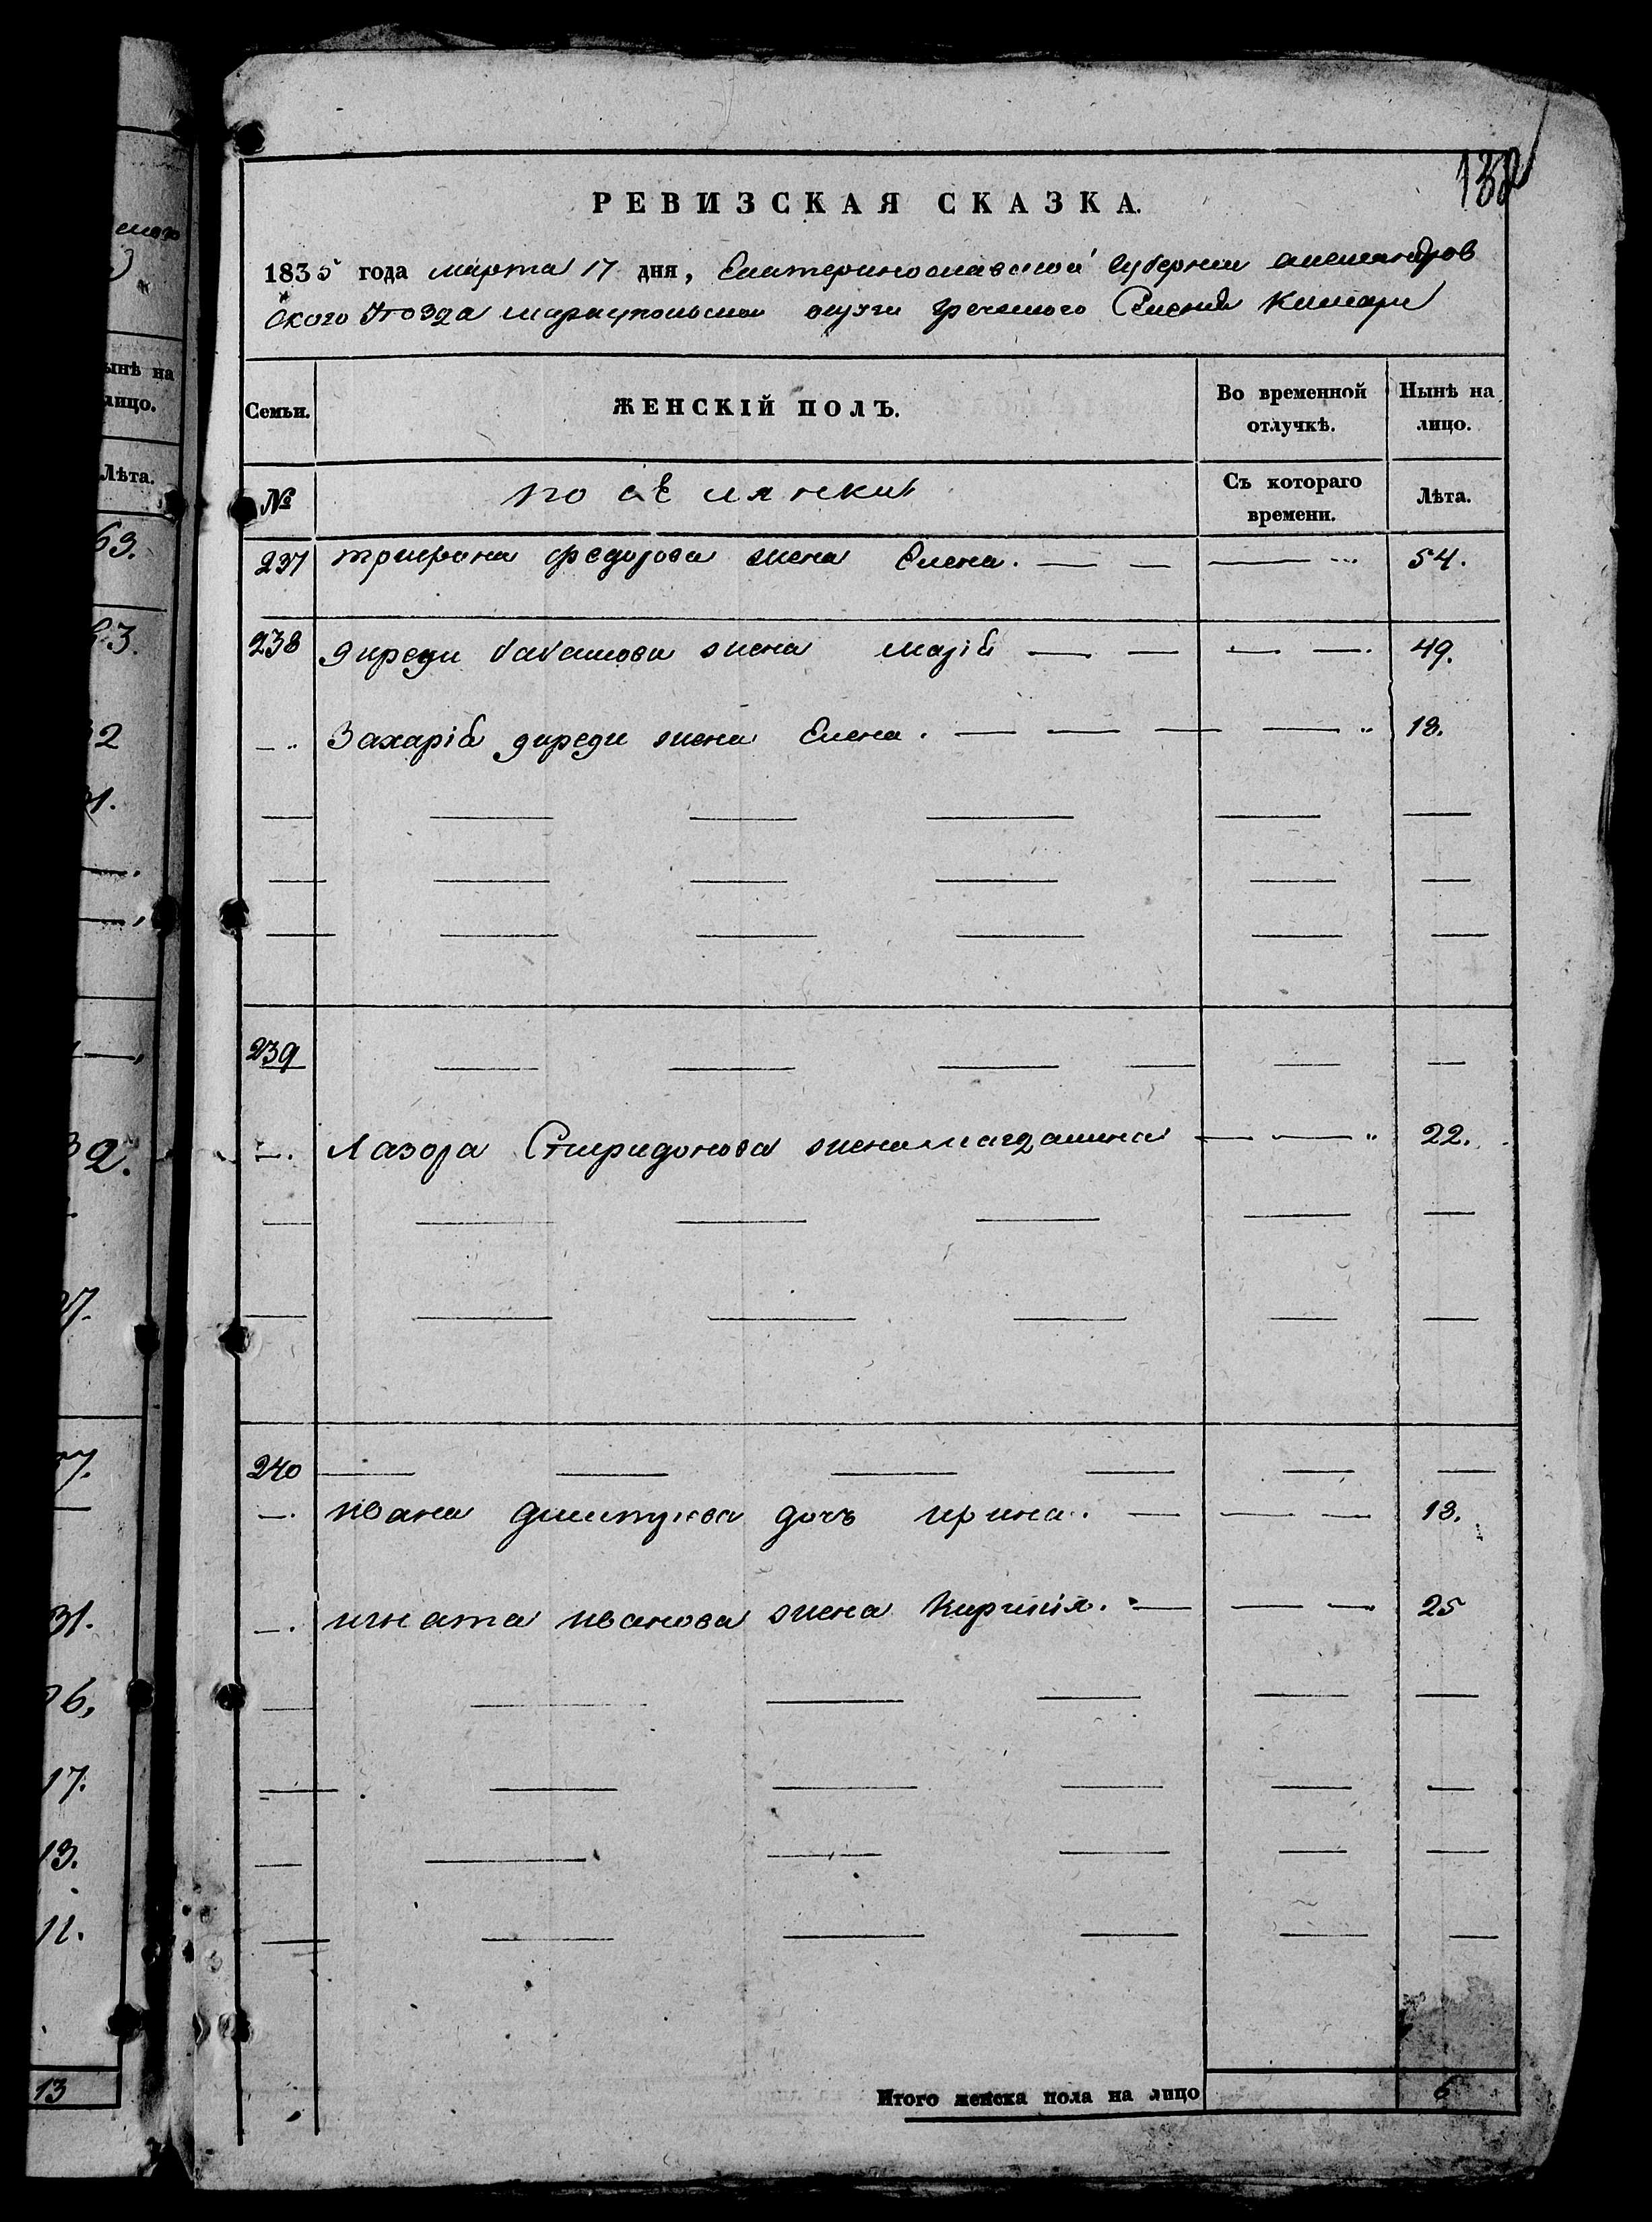 138
РЕВИЗСКАЯ СКАЗКА.
1835 года марта 17 дня, Екатеринославской Губернии александров
ского уѣзда мариупольской округи греческого Селения
Семьи. ЖЕНСКІЙ ПОЛЪ. Во временной отлучкѣ. Нынѣ на лицо.
№ поселянки Съ котораго времени. Лѣта.
237 трифона федорова жена Елена. 54.
238 жена маріа 49.
Захаріа жена Елена. 18.
239
Лазора Спиридонова жена магдалина 22.
240
ивана дочъ ирина. 13.
игната иванова жена 25
Итого женска пола на лицо 6
нынѣ на
лицо.
Лѣта.
63.
31.
17.
13.
11.
13